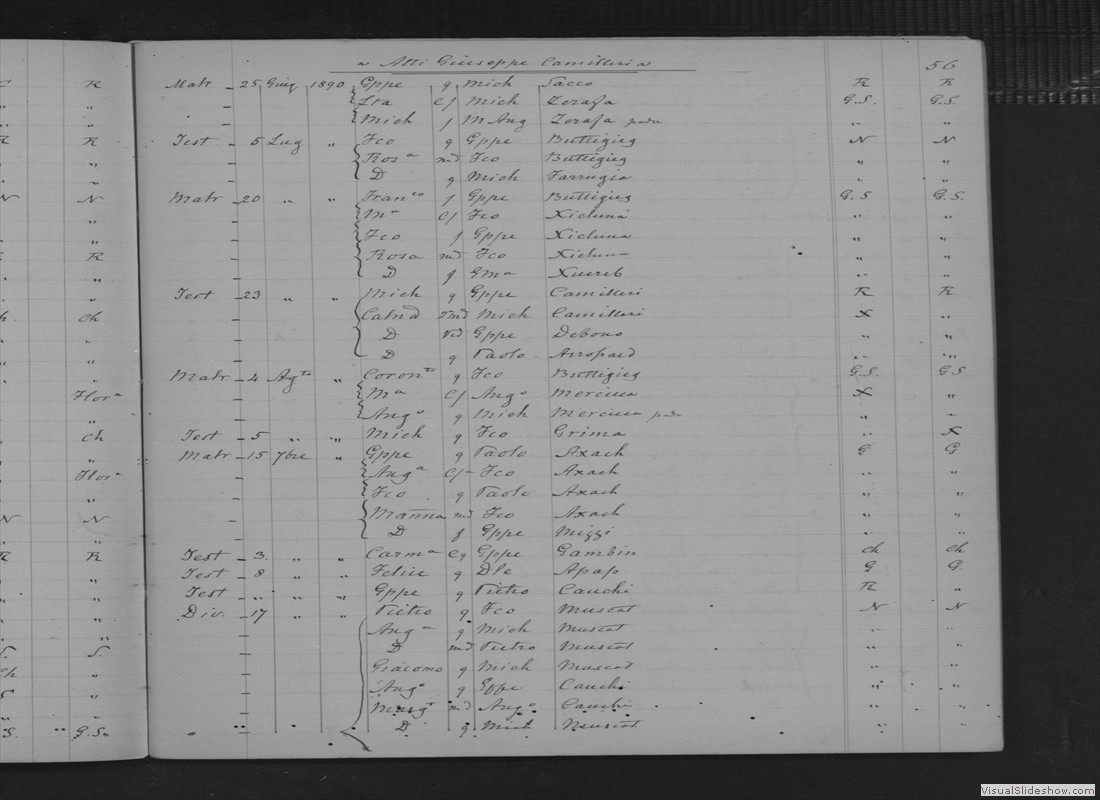 Atti Giuseppe Camilleri
56
Matr 25 Giug 1890 Gppe g Mich Sacco R R
Lta C/ Mich Zerafa G.S. G.S.
Mich f M Ang Zerafa " "
Test 5 Lug " Fco g Gppe Buttigieg N N
Rosa md Fco Buttigieg " "
D g Mich Farrugia " "
Matr 20 " " Franco f Gppe Buttigieg G.S G.S.
Ma C/ Fco Xicluna " "
Fco f Gppe Xicluna " "
Rosa md Fco Xicluna " "
D f Gma Xuereb " "
Test 23 " " Mich g Gppe Camilleri R R
Calnd 2md Mich Camilleri X "
D Gppe Debono " "
D g Paolo " "
Matr 4 Agto " Coronto g Fco Buttigieg G.S. G.S
Ma C/ Ango Mercieca X "
Ango g Mich Mercieca " "
Test 5 " " Mich g Fco Grima " X
Matr 15 7bre " Gppe g Paolo Axach G G
Anga C/ Fco Axach " "
Fco g Paolo Axach " "
Marina md Fco Axach " "
D f Gppe Mizzi " "
Test 3 " " Carma Cg Gppe Gambin Ch Ch
Test 8 " " Felice g Dle Apap G G
Test " " " Gppe g Pietro Cauchi R "
Div. 17 " " Pietro g Fco Muscat N N
Ang g Mich Muscat " "
D md Pietro Muscat " "
Giacomo g Mich Muscat " "
Ango g Gppe Cauchi " "
Margt md Ango Cauchi " "
D g Mich Muscat " "
VisualSlideshow.com